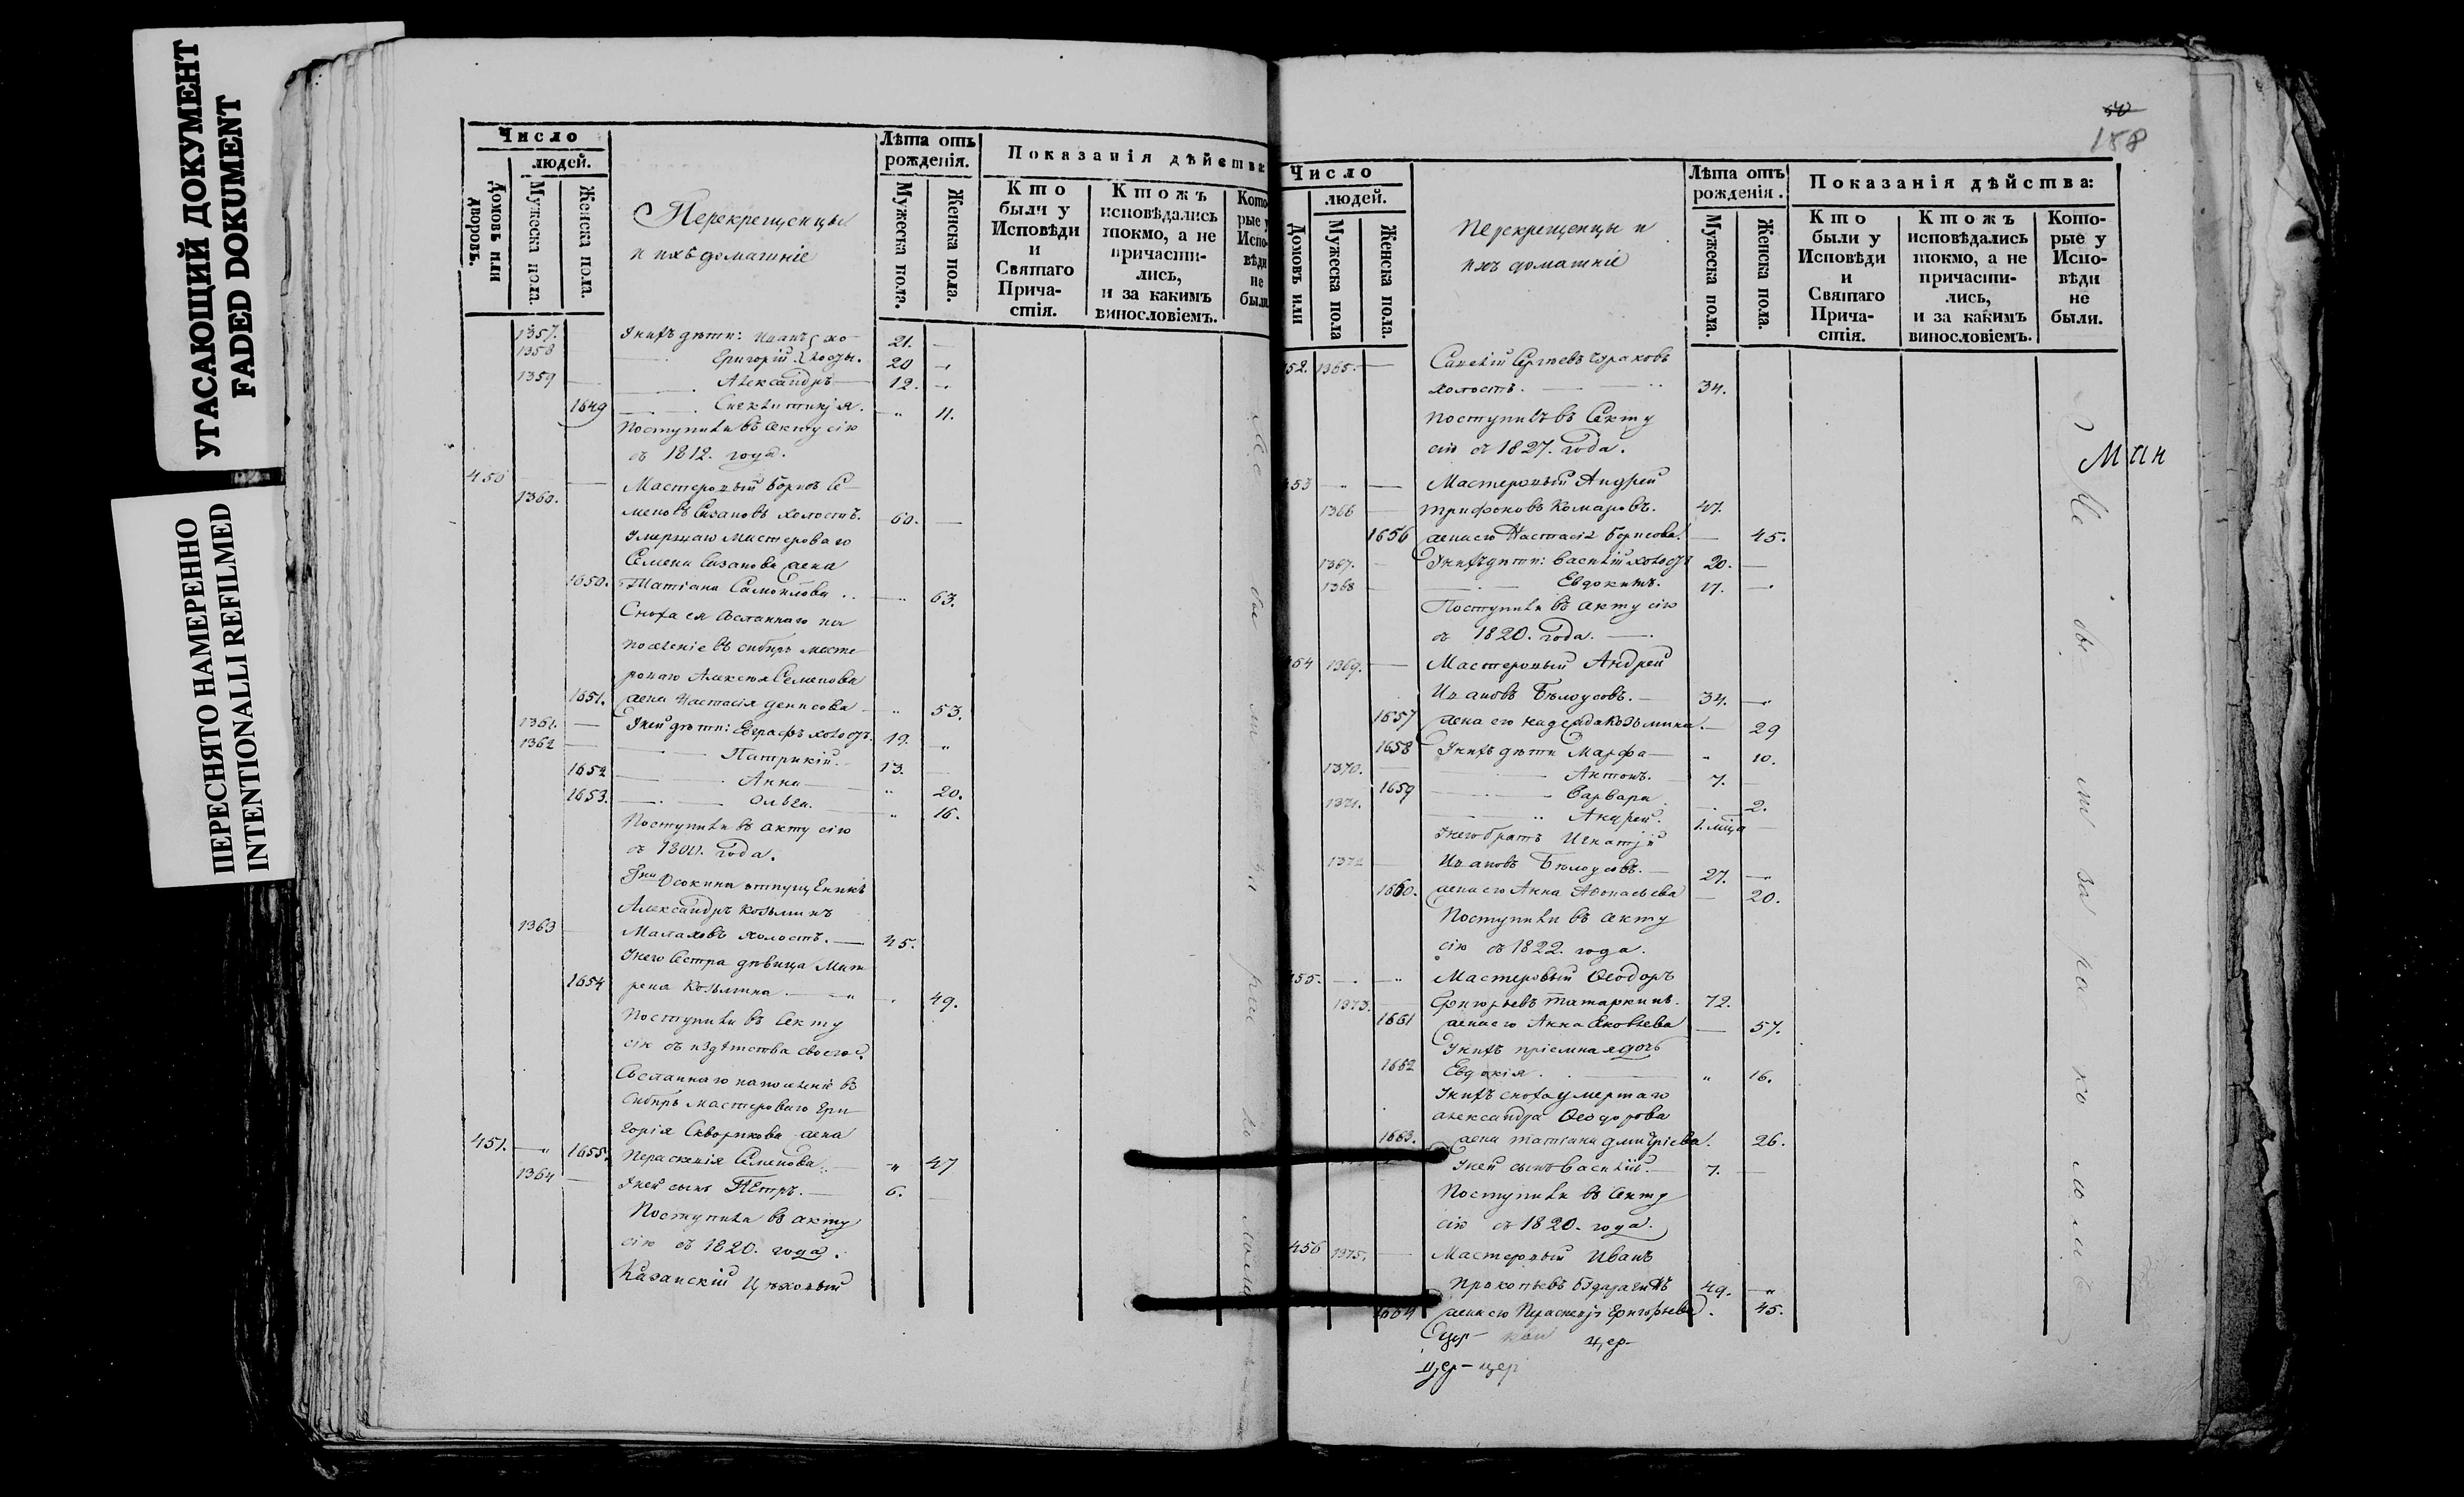 УГАСАЮЩИЙ ДОКУМЕНТ
FADED DOKUMENT
ПЕРЕСНЯТО НАМЕРЕННО
INTENTIONALLI REFILMED
Число
людей.
Домовъ или дворовъ.
Мужеска пола.
Женска пола.
Перекрещенцы
и ихъ домашніе
Лѣта отъ рожденія.
Мужеска пола.
Женска пола.
Показанія дѣйства:
Кто были у Исповѣди и Святаго Прича- стія.
Ктожъ исповѣдались токмо, а не причасти- лись, и за какимъ винословіемъ.
Кото- рые у Испо- вѣди не были
1357. У нихъ дѣти: Иванъ хо- 21. —
1358 Григорій лосты. 20
1359 — Александръ — 12.
1649 11.
Поступили въ секту сію
съ 1812. года.
450 — Мастеровый Борисъ Се-
1360. меновъ Сизановъ холостъ. 60. —
Умершаго мастероваго
Семена Сизанова жена
1650. Татіана Самойлова .. 63.
Сноха ея сосланнаго на
поселеніе въ сибирь масте-
роваго Алексея Семенова
1651. жена Настасія денисова 53.
1361. — У ней дѣти: Евграфъ холостъ. 19. "
1362 — Патрикій. 13.
1652 — Анна — " 20.
1653. — Ольга. " 16.
Поступили въ секту сію
съ года.
отпущеникъ
Александръ Козьминъ
1363 Малаховъ холостъ. — 45.
У него сестра дѣвица Мат
1654 рена Козьмина. — 49.
Поступили въ секту
сію съ издѣтства своего.
Сосланнаго на поселеніе въ
Сибирь мастероваго Гри
горія Скворикова жена
451. — 1655. Пераскевія Семенова. " 47
1364 — У ней сынъ Петръ. — 6.
Поступили въ секту
сію съ 1820. года.
Казанскій Цѣховый
158
Число
людей.
Домовъ или
Мужеска пола
Женска пола.
Перекрещенцы и
ихъ домашніе
Лѣта отъ рожденія.
Мужеска пола.
Женска пола.
Показанія дѣйства:
Кто были у Исповѣди и Святаго Прича- стія.
Ктожъ исповѣдались токмо, а не причасти- лись, и за какимъ винословіемъ.
Кото- рые у Испо- вѣди не были.
452. 1365. — Сергѣевъ
холостъ. — 34.
поступилъ въ Секту
сію съ 1827. года.
453 — Мастеровый Андрей
1366 — трифоновъ Комаровъ. 47.
1656 жена его Настасія Борисова. — 45.
1367. У нихъ дѣти: Василій холостъ 20. —
1368 Евдокимъ. 17. —
Поступили въ секту сію
съ 1820. года. —
454 1369. — Мастеровый Андрей
Ивановъ Бѣлоусовъ. — 34. —
1657 жена его надежда Козьмина. — 29
1658 У нихъ дѣти Марфа — " 10.
1370. — Антонъ. — 7.
1659 — Варвара. 2.
1371. " Андрей. 1. мѣца
У него братъ Игнатій
1372 Ивановъ Бѣлоусовъ. — 27. —
1660. жена его Анна Афонасьева — 20.
Поступили въ секту
сію съ 1822. года.
455. — Мастеровый Феодоръ
1373. Григорьевъ татаркинъ. 72.
1661 жена его Анна Яковлева — 57.
У нихъ пріемная дочь
1662 Евдокія. — " 16.
У нихъ сноха умершаго
александра Феодорова
1663. жена татіана дмитріева. 26.
У ней сынъ Василій. — 7. —
Поступили въ секту
сію съ 1820. года.
456 1375. — Мастеровый Иванъ
Прокопьевъ 49. —
1664 жена его Параскевія Григорьева. 45.
Мин
Не бы ли за рас ко ломъ
цер-
цер- цер